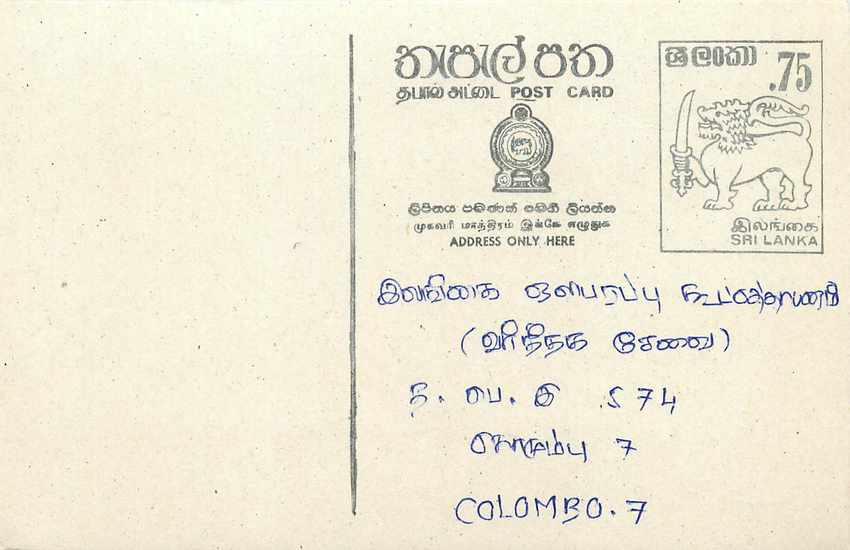 තැපැල් පත
தபால் அட்டை POST CARD
ලිපිනය පමණක් මෙහි ලියන්න
முகவரி மாத்திரம் இங்கே எழுதுக
ADDRESS ONLY HERE
ශ්‍රී ලංකා
.75
இலங்கை
SRI LANKA
இலங்கை ஒளிபரப்பு கூட்டுத்தாபனம்
(வர்த்தக சேவை)
த. பெ. இ 574
கொழும்பு 7
COLOMBO.7